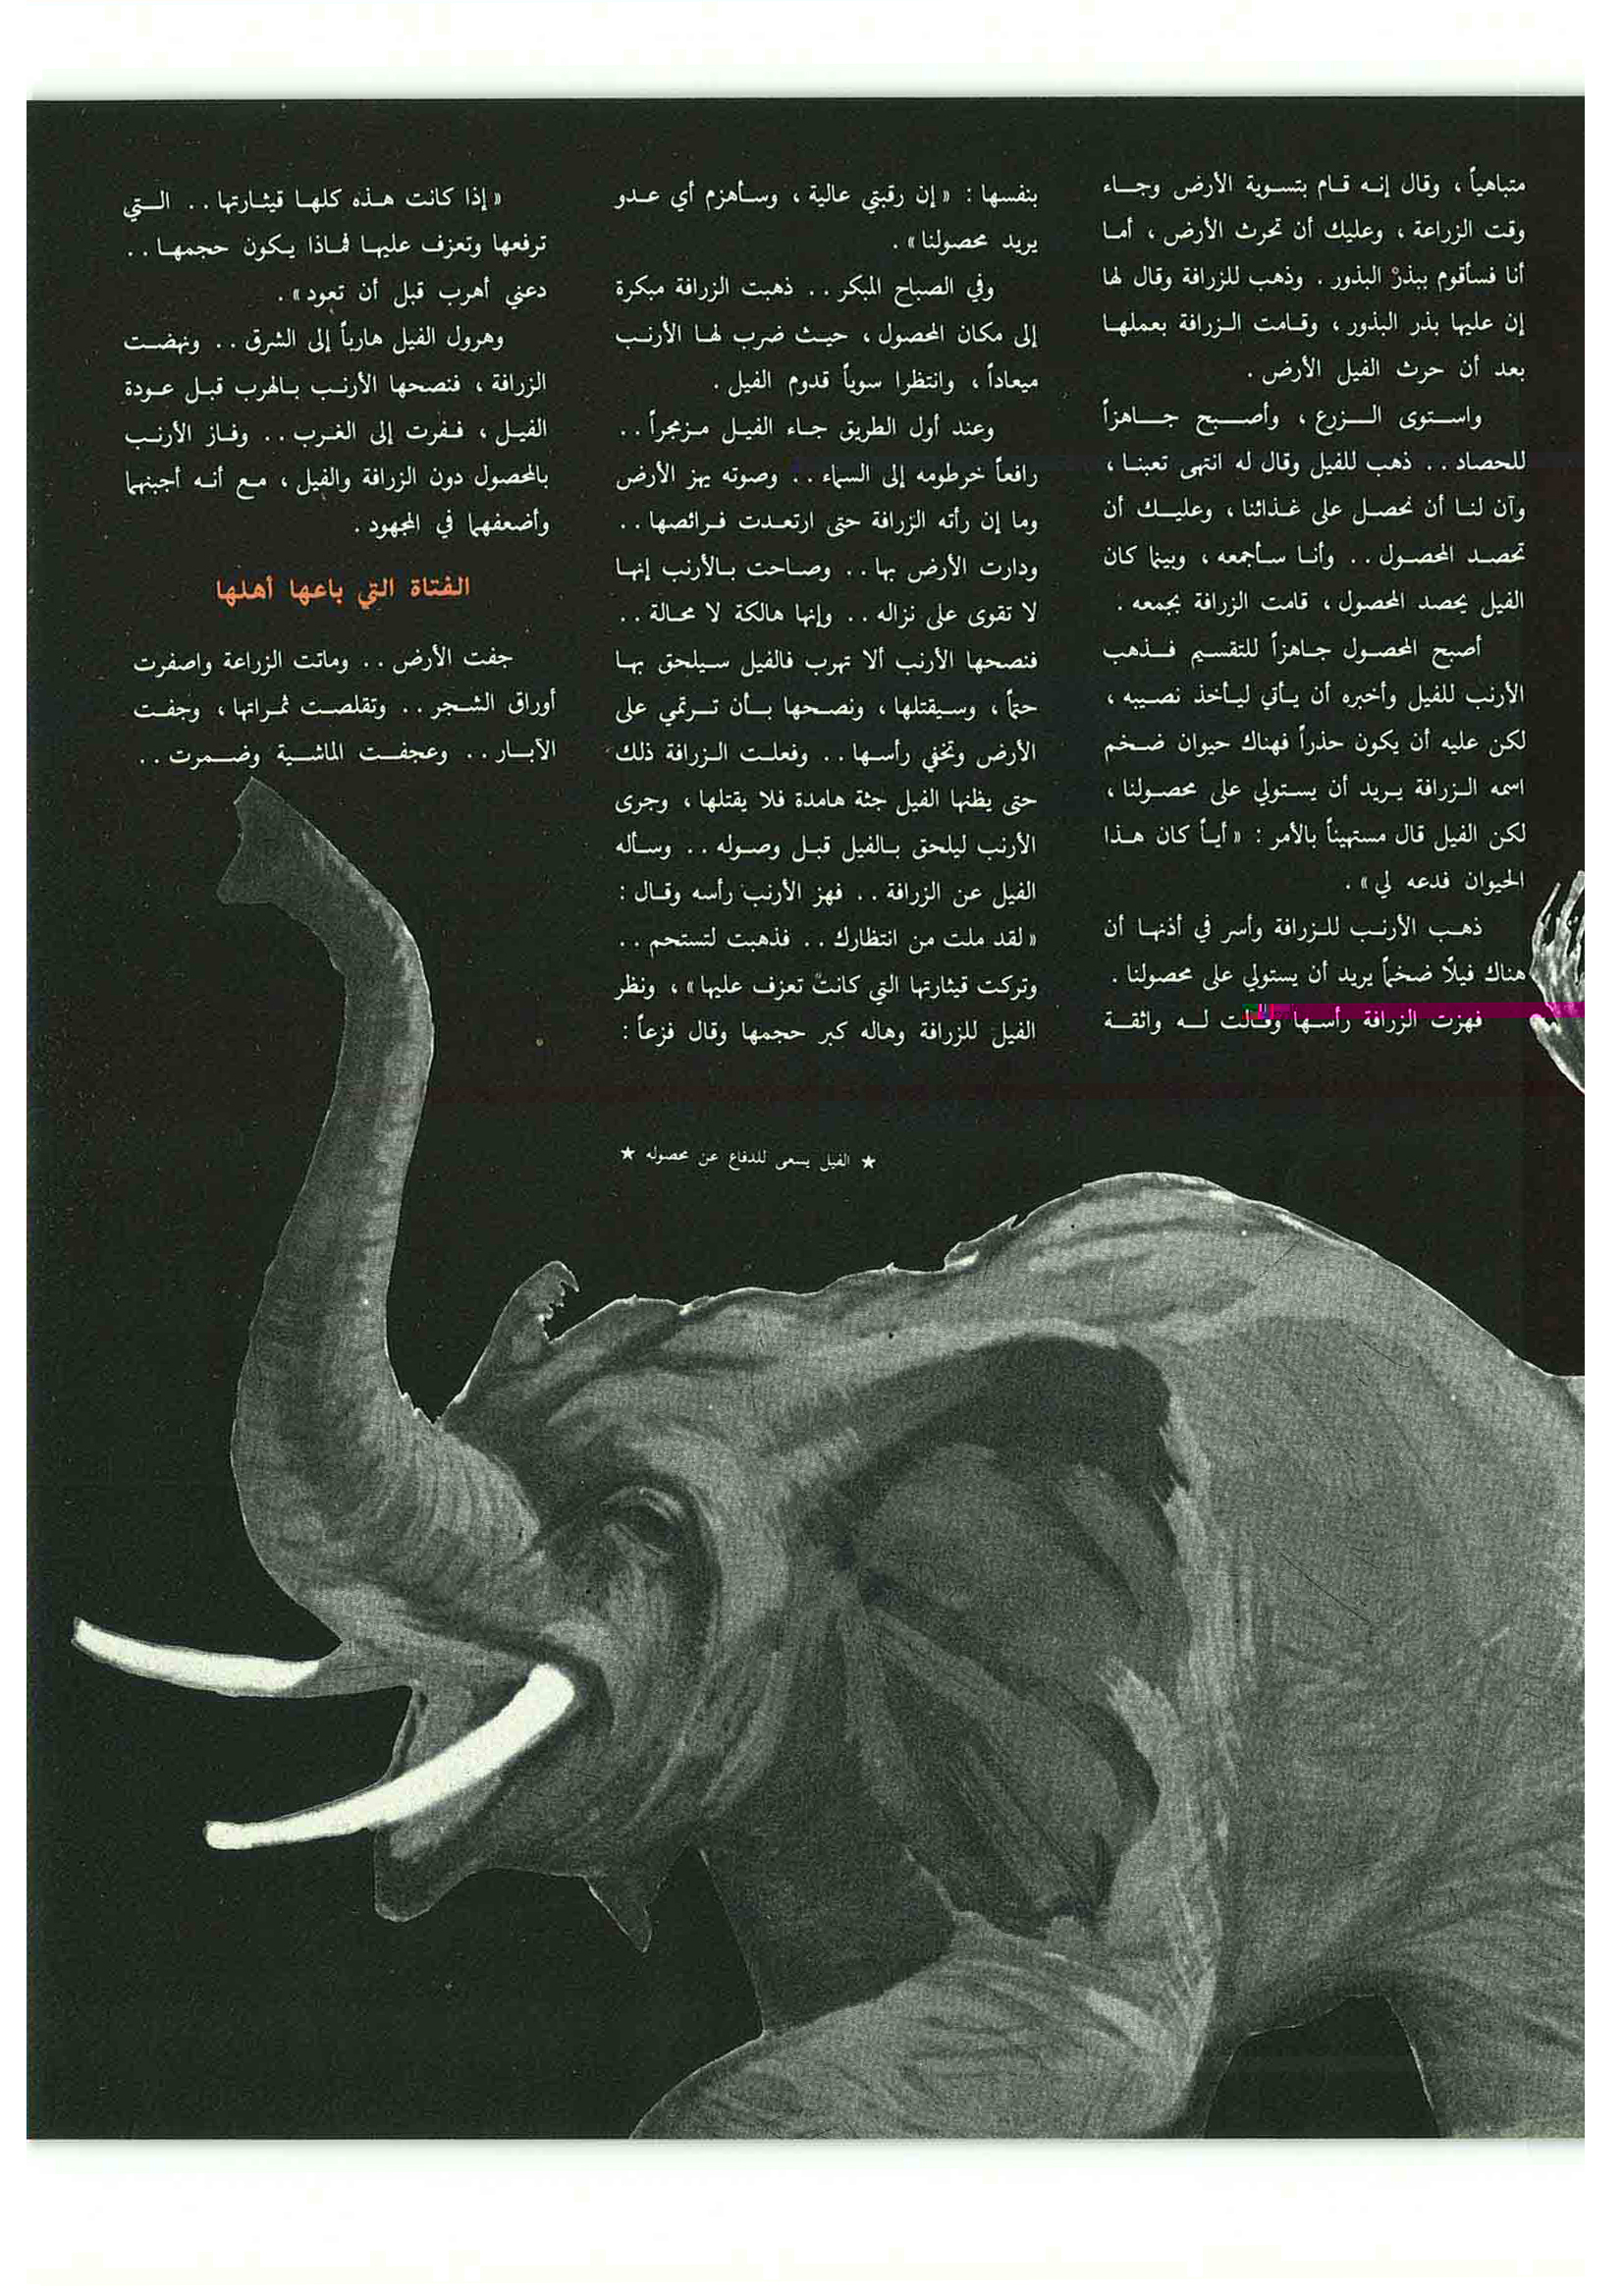 متباهياً ، وقال إنـه قـام بتسـوية الأرض وجـــاء
وقت الزراعة ، وعليك أن تحرث الأرض ، أمـا
أنا فسأقوم ببذرْ البذور . وذهب للزرافة وقال لها
إن عليها بذر البذور ، وقـامت الـزرافة بعملهـا
بعد أن حرث الفيل الأرض .
واسـتوى الـــزرع ، وأصـــبح جـــاهـزاً
للحصاد . . ذهب للفيل وقال له انتهى تعبنـا ،
وآن لنـا أن نحصـل على غـذائنـا ، وعليـــك أن
تحصـد المحصـول . . وأنـا سـأجمعه ، وبينما كان
الفيل يحصد المحصول ، قامت الزرافة بجمعه .
أصبح المحصـول جـاهـزاً للتقسـيم فـــذهب
الأرنب للفيل وأخبره أن يـأتي ليـأخذ نصـيبه ،
لكن عليه أن يكون حذراً فهناك حيوان ضـخم
اسمه الـزرافة يـريد أن يسـتولي على محصـولنا ،
لكن الفيل قال مستهيناً بالأمر : « أيـاً كان هـذا
الحيوان فدعه لي » .
ذهـب الأرنـب للـزرافة وأسر في أذنهـا أن
هناك فيلاً ضخماً يريد أن يستولي على محصولنا .
فهزت الزرافة رأسـها وقـالت لــه واثقــة
بنفسها : « إن رقبتي عالية ، وسـأهزم أي عـدو
يريد محصولنا » .
وفي الصباح المبكر . . ذهبت الزرافة مبكرة
إلى مكان المحصول ، حيـث ضرب لهـا الأرنـب
ميعاداً ، وانتظرا سوياً قدوم الفيل .
وعند أول الطريق جـاء الفيـل مـزمجراً . .
رافعاً خرطومه إلى السماء . . وصوته يهز الأرض
وما إن رأته الزرافة حتى ارتعـدت فـرائصها . .
ودارت الأرض بها . . وصـاحت بـالأرنب إنهـا
لا تقوى على نزاله . . وإنها هالكة لا محـالة . .
فنصحها الأرنب ألا تهرب فالفيل سـيلحق بهـا
حتماً ، وسـيقتلها ، ونصـحها بـأن تـرتمي على
الأرض وتخفي رأسـها . . وفعلـت الـزرافة ذلك
حتى يظنها الفيل جثة هامدة فلا يقتلها ، وجرى
الأرنب ليلحق بـالفيل قبـل وصـوله . . وسـأله
الفيل عن الزرافة . . فهز الأرنب رأسه وقـال :
« لقد ملت من انتظارك . . فذهبت لتستحم . .
وتركت قيثارتها التي كانت تعزف عليها » ، ونظر
الفيل للزرافة وهاله كبر حجمها وقال فزعاً :
« إذا كانت هـذه كلهـا قيثـارتها . . الـتي
ترفعها وتعزف عليهـا فماذا يـكون حجمهـا . .
دعني أهرب قبل أن تعود » .
وهرول الفيل هارباً إلى الشرق . . ونهضـت
الزرافة ، فنصحها الأرنـب بـالهرب قبـل عـودة
الفيـل ، فـفرت إلى الغـرب . . وفـاز الأرنـب
بالمحصول دون الزرافة والفيل ، مـع أنـه أجبنهما
وأضعفهما في المجهود .
الفتاة التي باعها أهلها
جفت الأرض . . وماتت الزراعة واصفرت
أوراق الشـجر . . وتقلصـت ثمـراتها ، وجفـت
الآبـار . . وعجفـت الماشـية وضـــمرت . .
★ الفيل يسعى للدفاع عن محصوله ★